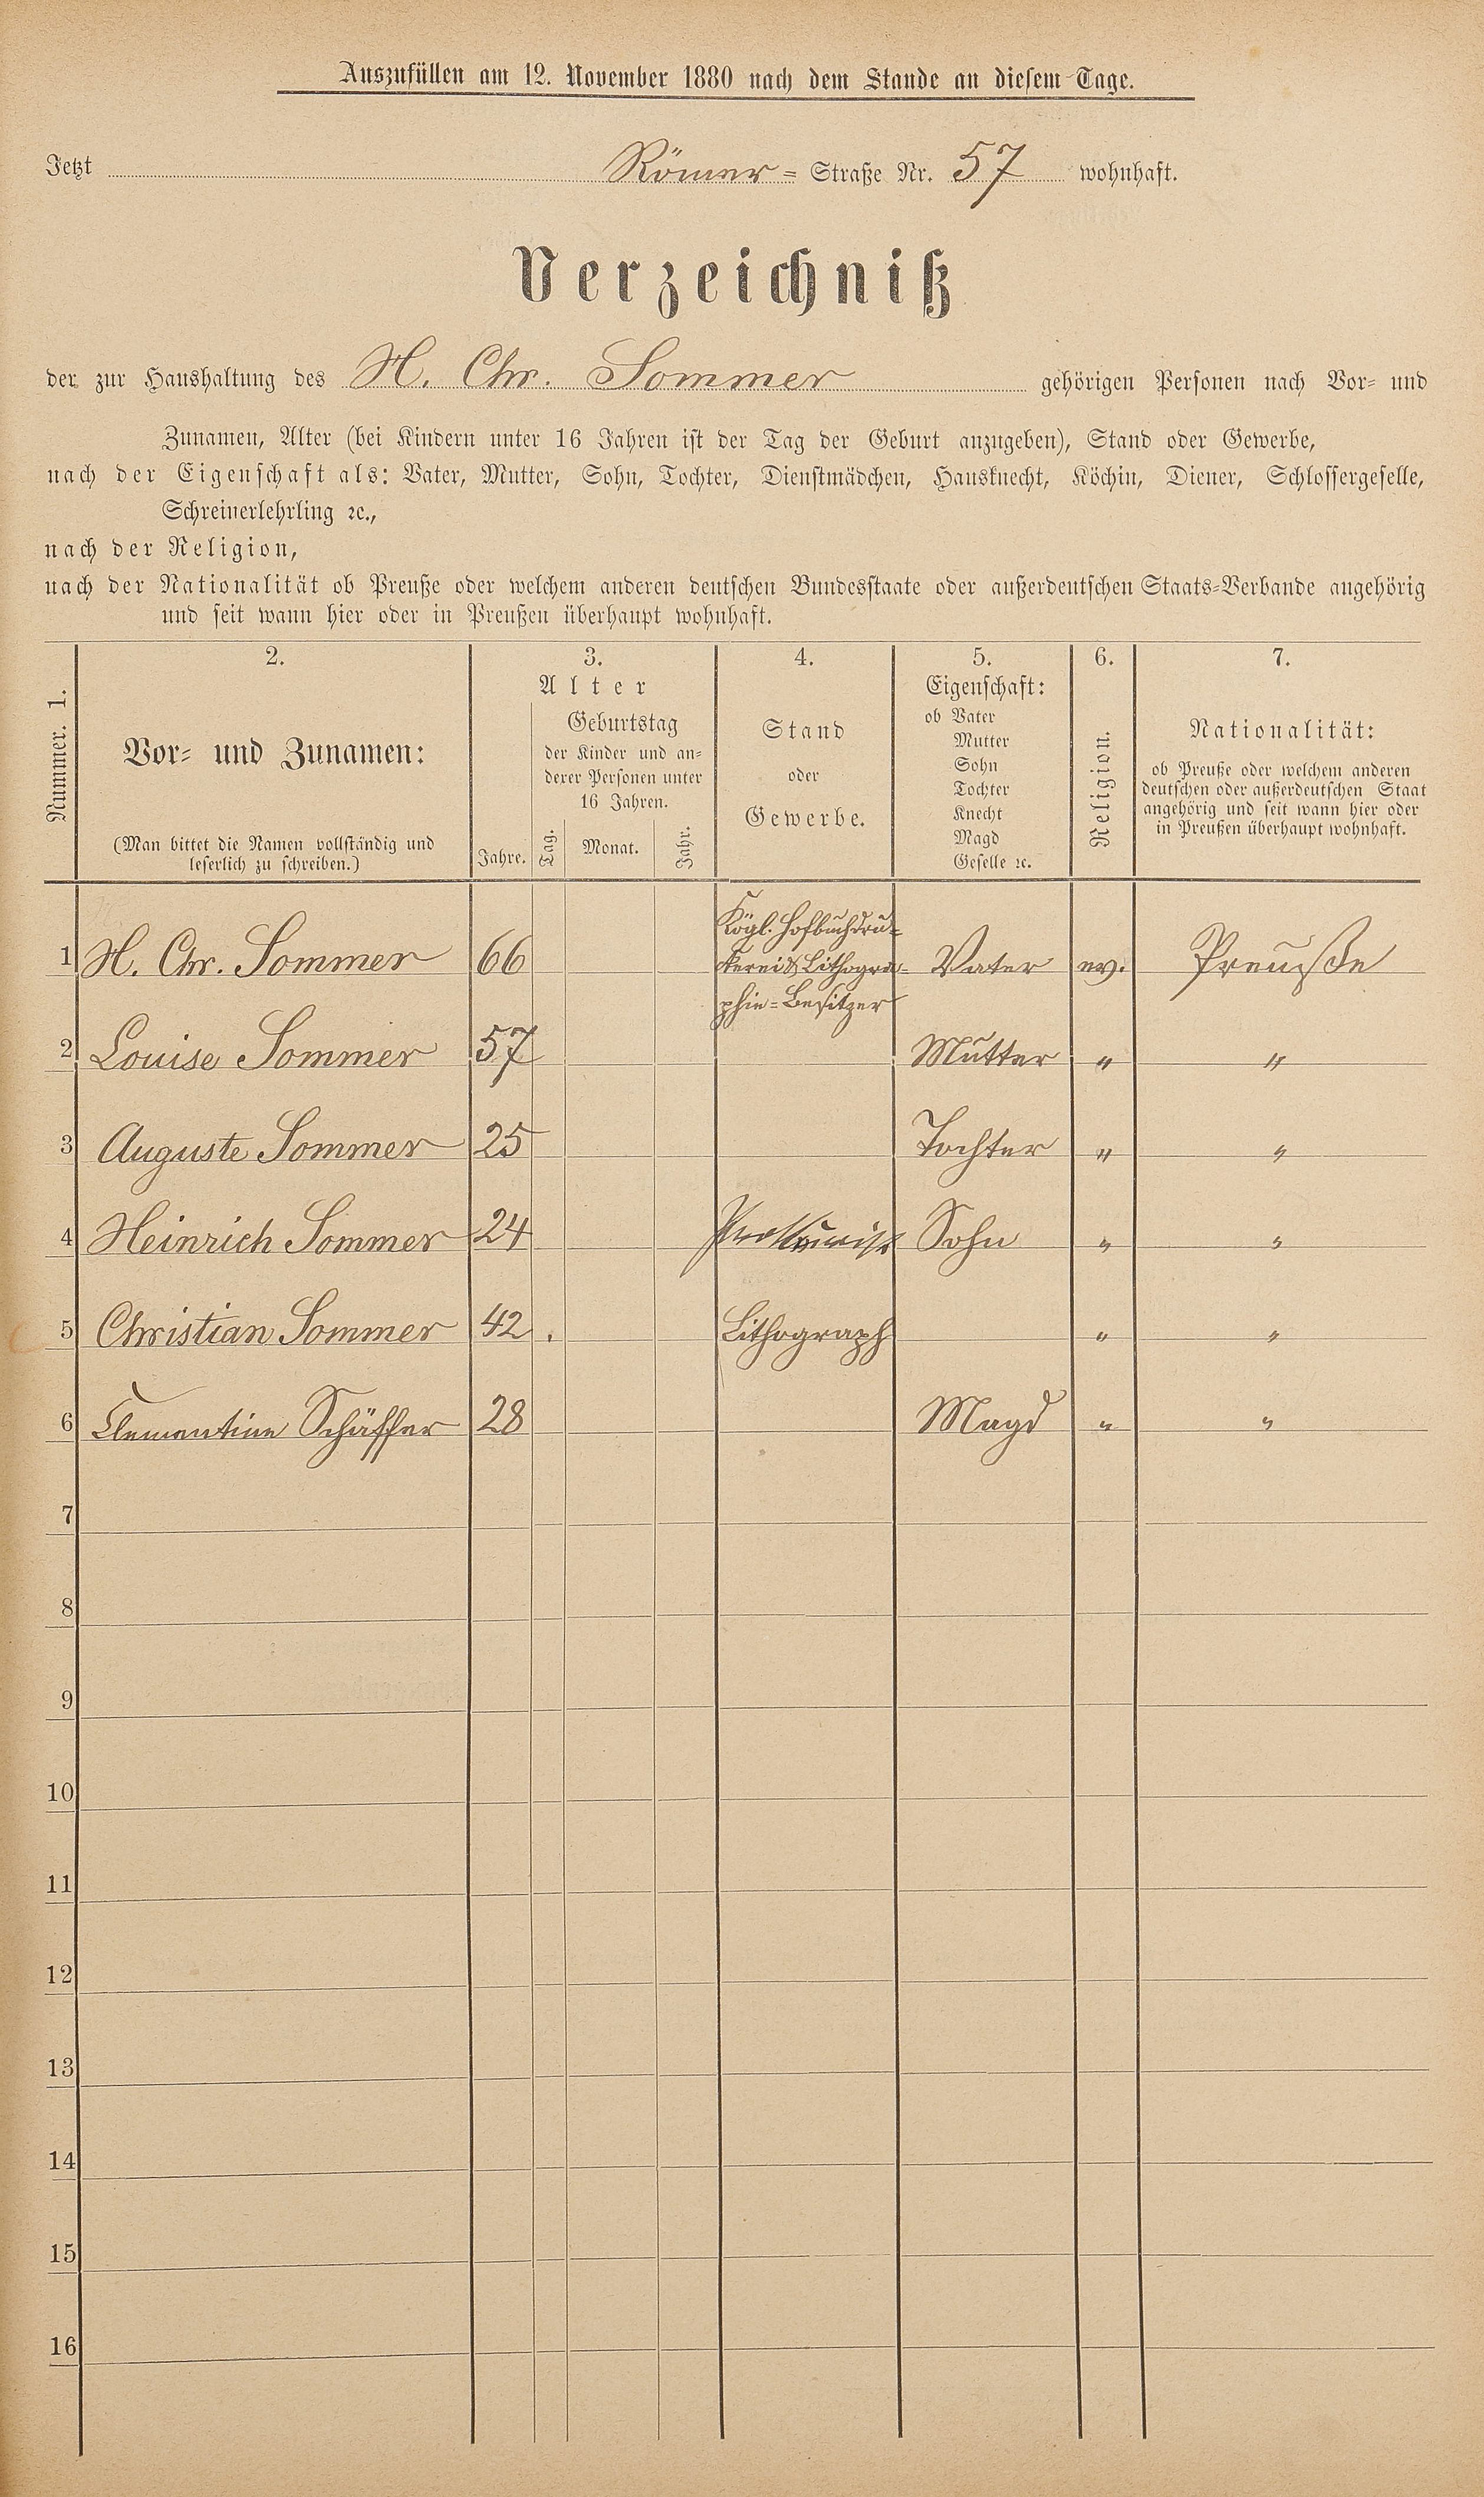 Auszufüllen am 12. November 1880 nach dem Stande an diesem Tage.
Jetzt Römer= Straße Nr. 57 wohnhaft.
Verzeichniß
der zur Haushaltung des H. Chr. Sommer gehörigen Personen nach Vor= und
Zunamen, Alter (bei Kindern unter 16 Jahren ist der Tag der Geburt anzugeben), Stand oder Gewerbe,
nach der Eigenschaft als: Vater, Mutter, Sohn, Tochter, Dienstmädchen, Hausknecht, Köchin, Diener, Schlossergeselle,
Schreinerlehrling ꝛc.,
nach der Religion,
nach der Nationalität ob Preuße oder welchem anderen deutschen Bundesstaate oder außerdeutschen Staats=Verbande angehörig
und seit wann hier oder in Preußen überhaupt wohnhaft.
Nummer. 1.
2.
Vor= und Zunamen:
(Man bittet die Namen vollständig und
leserlich zu schreiben.)
3.
Alter
Jahre.
Geburtstag
der Kinder und an=
derer Personen unter
16 Jahren.
Tag. Monat. Jahr.
4.
Stand
oder
Gewerbe.
5.
Eigenschaft:
ob Vater
Mutter
Sohn
Tochter
Knecht
Magd
Geselle ꝛc.
6.
Religion.
7.
Nationalität:
ob Preuße oder welchem anderen
deutschen oder außerdeutschen Staat
angehörig und seit wann hier oder
in Preußen überhaupt wohnhaft.
1 H. Chr. Sommer 66 Kögl. Hofbuchdru=
ckerei & Lithogra=
phie=Besitzer Vater ev. Preuße
2 Louise Sommer 57 Mutter " "
3 Auguste Sommer 25 Tochter " "
4 Heinrich Sommer 24 Prokurist Sohn " "
5 Christian Sommer 42. Lithograph " "
6 Clementine Schäffer 28 Magd " "
7
8
9
10
11
12
13
14
15
16